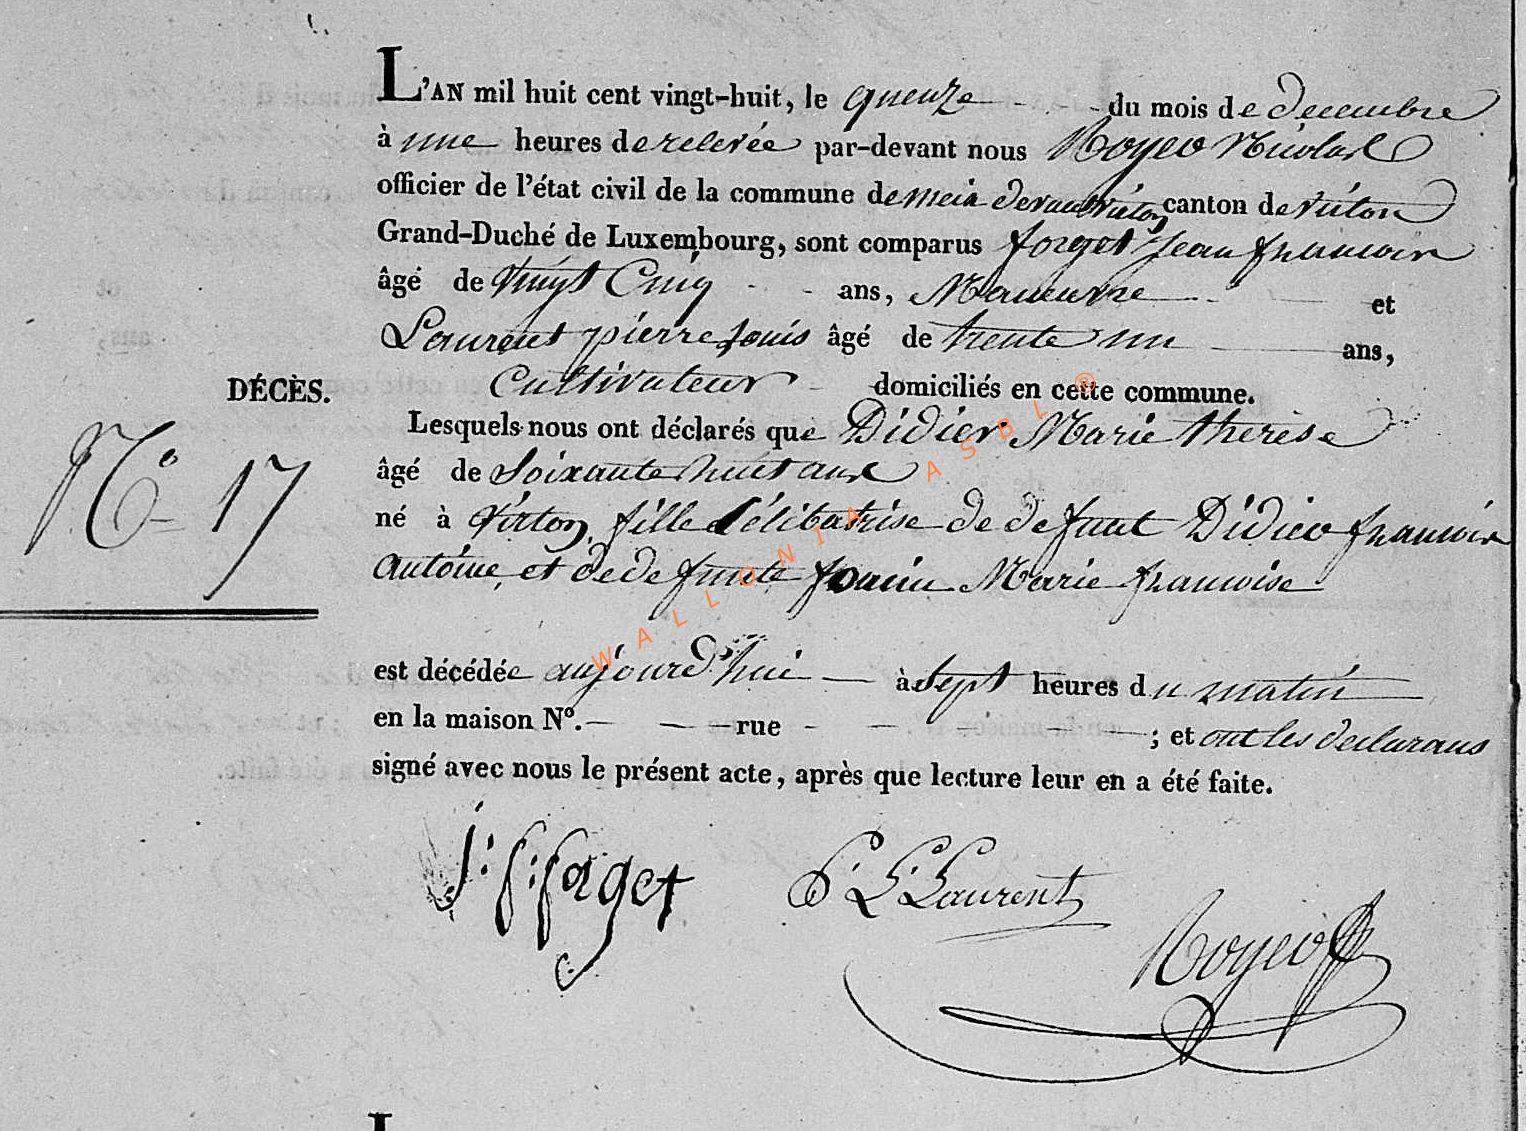 L'AN mil huit cent vingt-huit, le quenze du mois de decembre
à une heures de relevée par-devant nous Royer Nicolas
officier de l'état civil de la commune de meix devant virton canton de virton
Grand-Duché de Luxembourg, sont comparus forget Jean francois
âgé de vingt Cinq ans, Maneuvre et
Laurent pierre Louis âgé de trente un ans,
DÉCÈS.
Cultivateur domiciliés en cette commune.
Lesquels nous ont déclarés que Didier Marie therese
N° 17
âgé de Soixante huit ans
né à virton, fille Célibatrise de defunt Didier francois
antoine, et de defunte Marie francoise
est décédée aujourd'hui à sept heures du matin
en la maison N°. rue ; et ont les declarans
signé avec nous le présent acte, après que lecture leur en a été faite.
J: f: forget
P. L. Laurent
Royer
L
WALLONIA ASBL ®